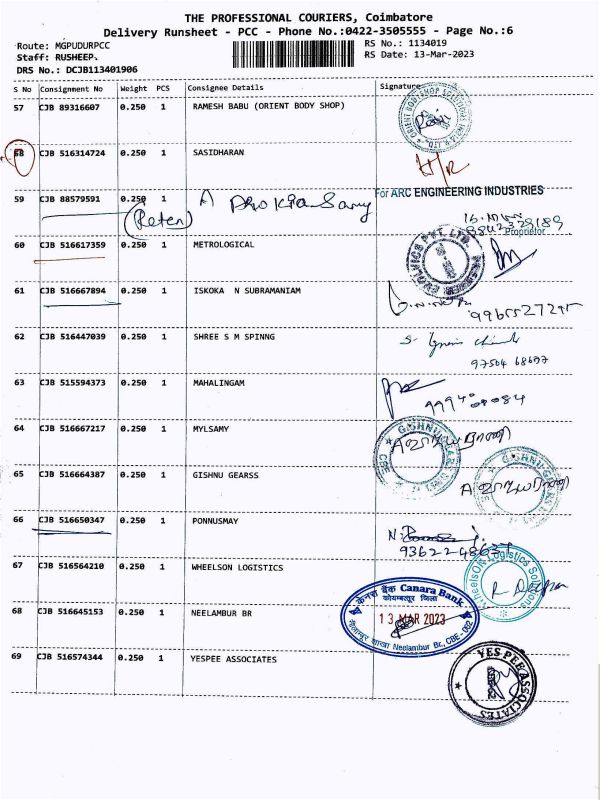 THE PROFESSIONAL COURIERS, Coimbatore
Delivery Runsheet - PCC - Phone No.:0422-3505555 - Page No.:6
Route: MGPUDURPCC
RS No.: 1134019
Staff: RUSHEEP.
RS Date: 13-Mar-2023
DRS No.: DCJB113401906
S No Consignment No Weight PCS Consignee Details Signature
57 CJB 89316607 0.250 1 RAMESH BABU (ORIENT BODY SHOP)
58 CJB 516314724 0.250 1 SASIDHARAN
H/R
For ARC ENGINEERING INDUSTRIES
59 CJB 88579591 0.250 1
(Reten)
Proprietor
60 CJB 516617359 0.250 1 METROLOGICAL
61 CJB 516667894 0.250 1 ISKOKA N SUBRAMANIAM
62 CJB 516447039 0.250 1 SHREE S M SPINNG
97504 68697
63 CJB 515594373 0.250 1 MAHALINGAM
64 CJB 516667217 0.250 1 MYLSAMY
65 CJB 516664387 0.250 1 GISHNU GEARSS
66 CJB 516650347 0.250 1 PONNUSMAY
67 CJB 516564210 0.250 1 WHEELSON LOGISTICS
WheelsON Logistics Solutions
68 CJB 516645153 0.250 1 NEELAMBUR BR
केनरा बैंक Canara Bank
कोयम्बत्तूर जिला
13 MAR 2023
Neelambur Br., CBE - 062
69 CJB 516574344 0.250 1 YESPEE ASSOCIATES
YES PEE ASSOCIATES